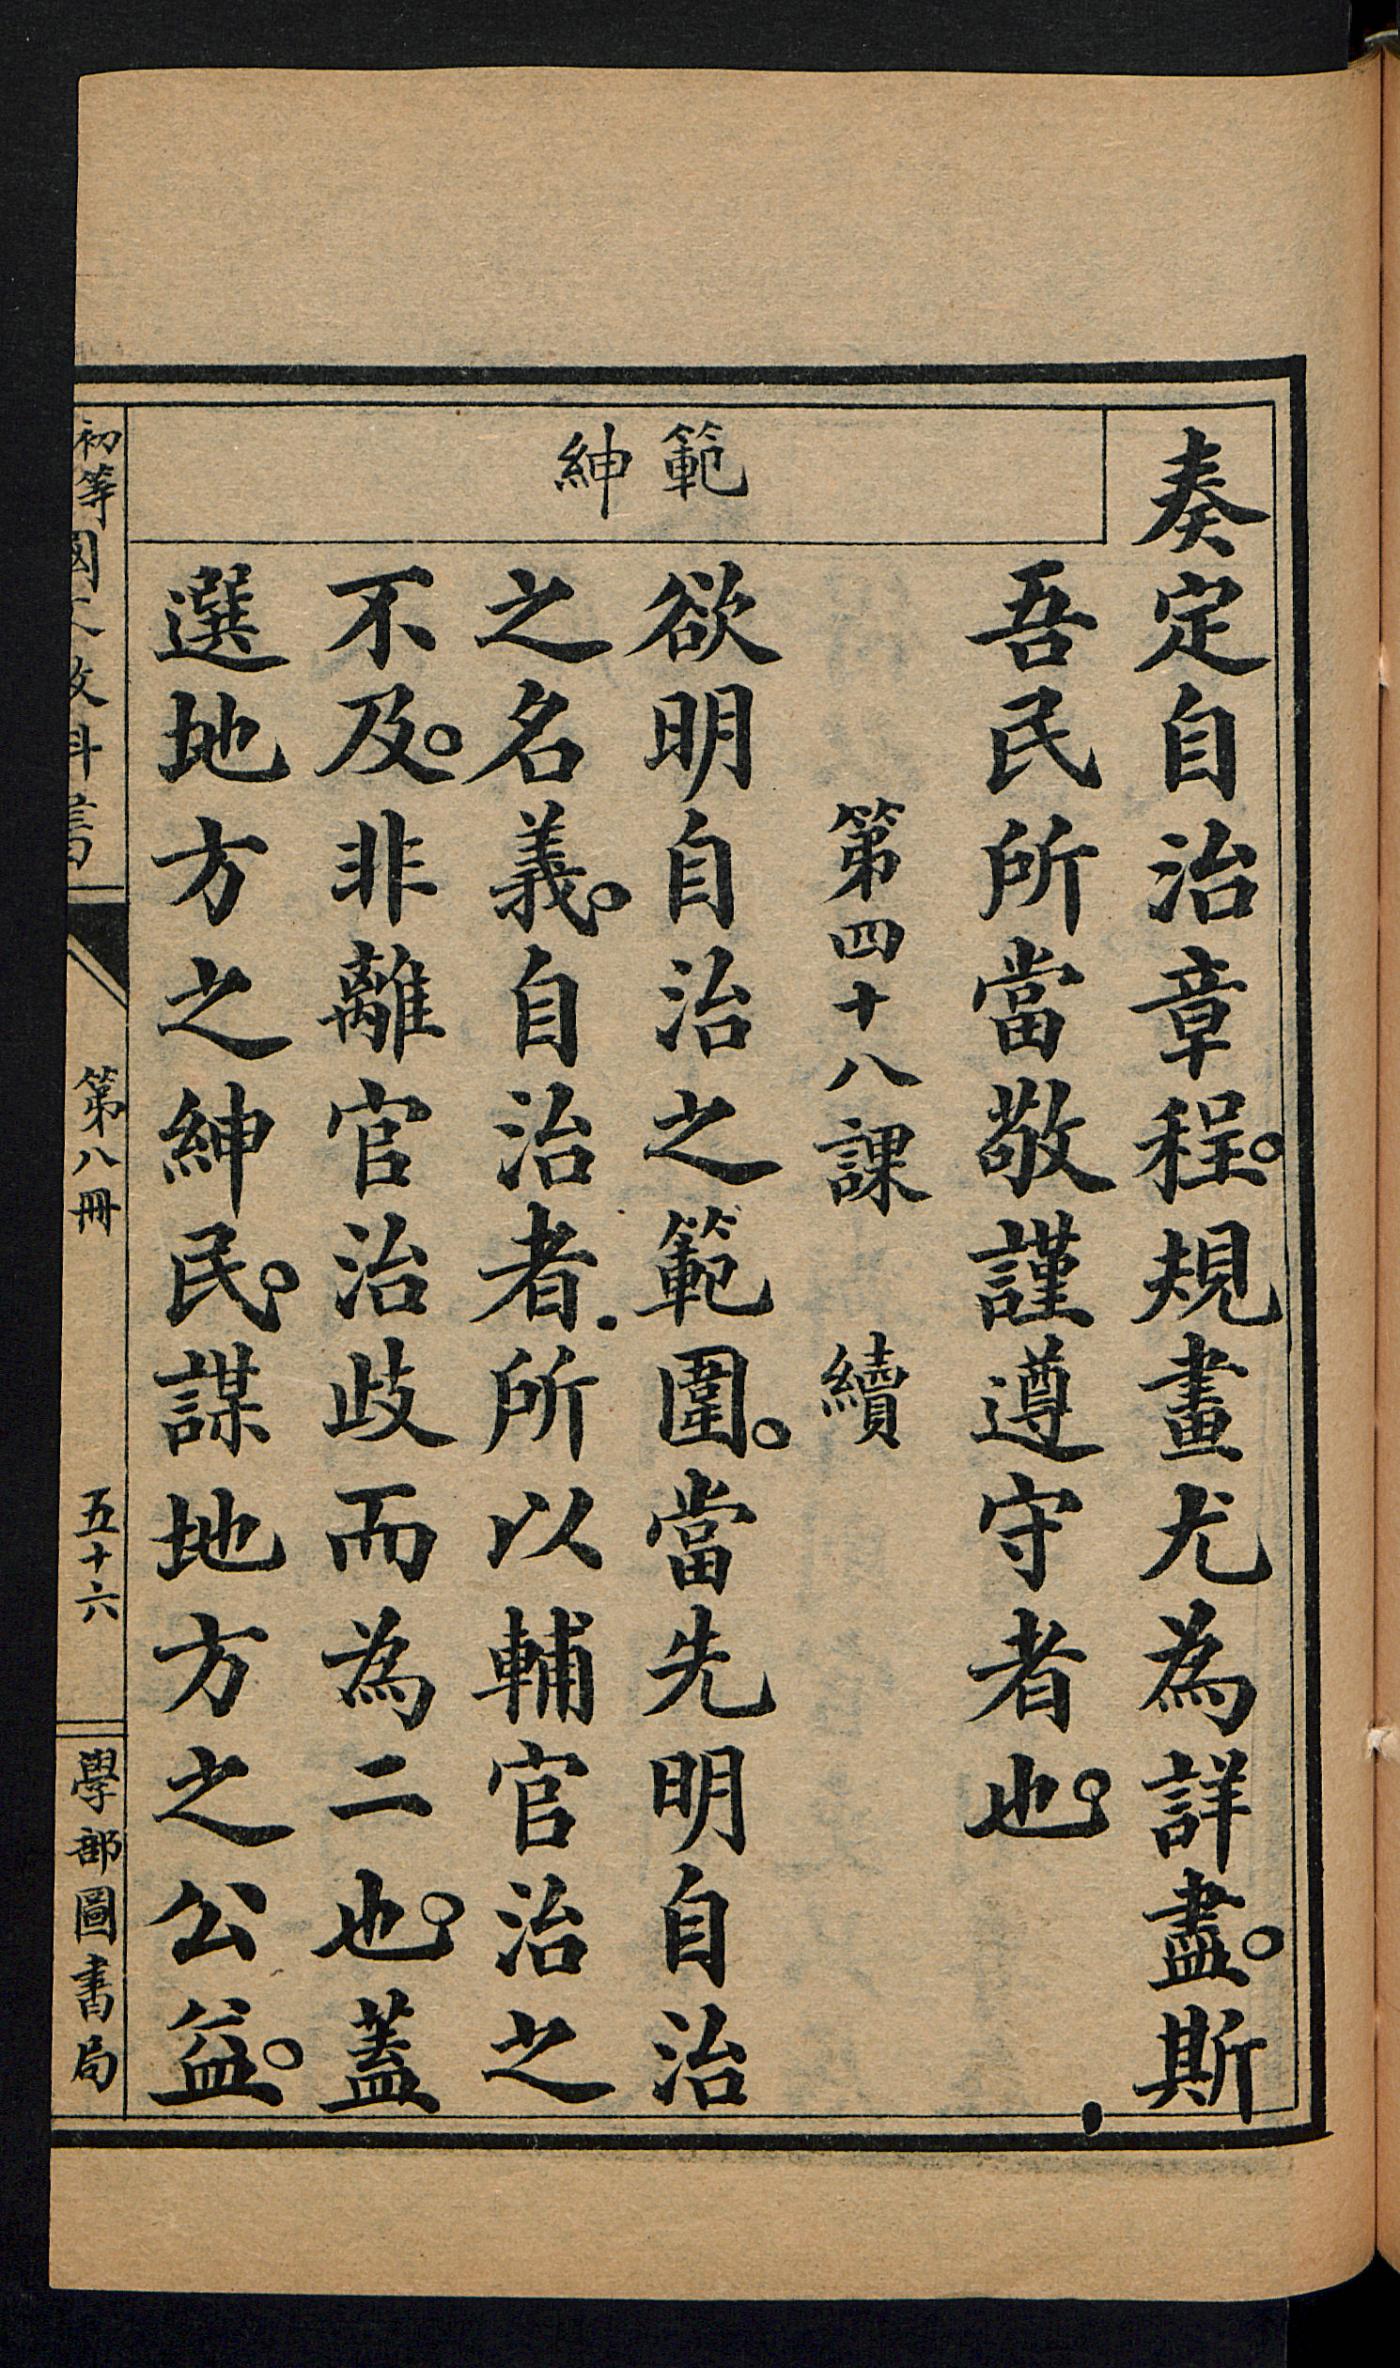 奏定自治章程。規畫尤為詳盡。斯
吾民所當敬謹遵守者也。
第四十八課 續
範
紳
欲明自治之範圍。當先明自治
之名義。自治者.所以輔官治之
不及。非離官治歧而為二也。蓋
選地方之紳民。謀地方之公益。
初等國文教科書
第八冊
五十六
學部圖書局